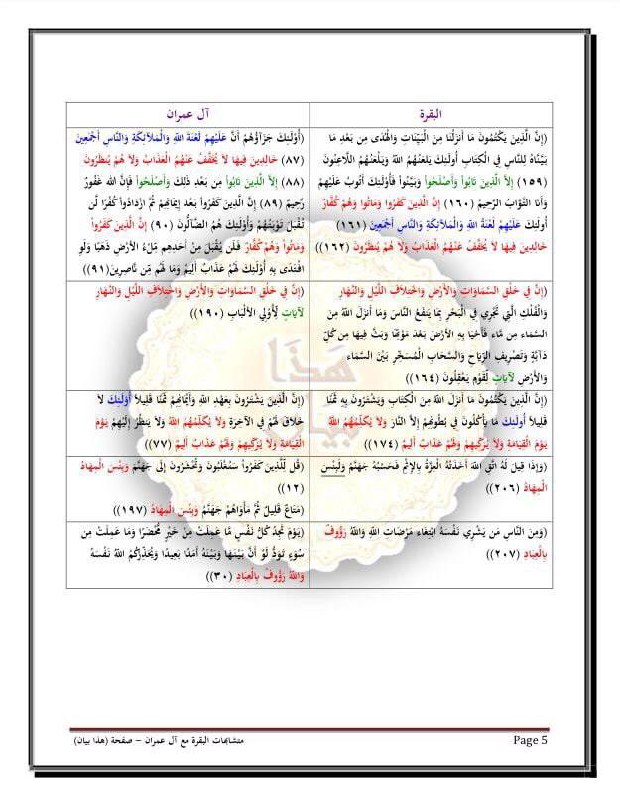 البقرة
آل عمران
(إِنَّ الَّذِينَ يَكْتُمُونَ مَا أَنزَلْنَا مِنَ الْبَيِّنَاتِ وَالْهُدَى مِن بَعْدِ مَا
بَيَّنَّاهُ لِلنَّاسِ فِي الْكِتَابِ أُولَئِكَ يَلعَنُهُمُ اللّهُ وَيَلْعَنُهُمُ اللَّاعِنُونَ
(١٥٩) إِلاَّ الَّذِينَ تَابُواْ وَأَصْلَحُواْ وَبَيَّنُواْ فَأُوْلَئِكَ أَتُوبُ عَلَيْهِمْ
وَأَنَا التَّوَّابُ الرَّحِيمُ (١٦٠) إِنَّ الَّذِينَ كَفَرُوا وَمَاتُوا وَهُمْ كُفَّارٌ
أُولَئِكَ عَلَيْهِمْ لَعْنَةُ اللّهِ وَالْمَلآئِكَةِ وَالنَّاسِ أَجْمَعِينَ (١٦١)
خَالِدِينَ فِيهَا لاَ يُخَفَّفُ عَنْهُمُ الْعَذَابُ وَلاَ هُمْ يُنظَرُونَ (١٦٢))
(أُوْلَئِكَ جَزَآؤُهُمْ أَنَّ عَلَيْهِمْ لَعْنَةَ اللّهِ وَالْمَلآئِكَةِ وَالنَّاسِ أَجْمَعِينَ
(٨٧) خَالِدِينَ فِيهَا لاَ يُخَفَّفُ عَنْهُمُ الْعَذَابُ وَلاَ هُمْ يُنظَرُونَ
(٨٨) إِلاَّ الَّذِينَ تَابُواْ مِن بَعْدِ ذَلِكَ وَأَصْلَحُواْ فَإِنَّ الله غَفُورٌ
رَّحِيمٌ (٨٩) إِنَّ الَّذِينَ كَفَرُواْ بَعْدَ إِيمَانِهِمْ ثُمَّ ازْدَادُواْ كُفْرًا لَّن
تُقْبَلَ تَوْبَتُهُمْ وَأُوْلَئِكَ هُمُ الضَّآلُّونَ (٩٠) إِنَّ الَّذِينَ كَفَرُواْ
وَمَاتُواْ وَهُمْ كُفَّارٌ فَلَن يُقْبَلَ مِنْ أَحَدِهِم مِّلْءُ الأرْضِ ذَهَبًا وَلَوِ
افْتَدَى بِهِ أُوْلَئِكَ لَهُمْ عَذَابٌ أَلِيمٌ وَمَا لَهُم مِّن نَّاصِرِينَ(٩١))
(إِنَّ فِي خَلْقِ السَّمَاوَاتِ وَالأَرْضِ وَاخْتِلاَفِ اللَّيْلِ وَالنَّهَارِ
وَالْفُلْكِ الَّتِي تَجْرِي فِي الْبَحْرِ بِمَا يَنفَعُ النَّاسَ وَمَا أَنزَلَ اللّهُ مِنَ
السَّمَاءِ مِن مَّاء فَأَحْيَا بِهِ الأرْضَ بَعْدَ مَوْتِهَا وَبَثَّ فِيهَا مِن كُلِّ
دَآبَّةٍ وَتَصْرِيفِ الرِّيَاحِ وَالسَّحَابِ الْمُسَخَّرِ بَيْنَ السَّمَاء
وَالأَرْضِ لآيَاتٍ لِّقَوْمٍ يَعْقِلُونَ (١٦٤))
(إِنَّ فِي خَلْقِ السَّمَاوَاتِ وَالأَرْضِ وَاخْتِلاَفِ اللَّيْلِ وَالنَّهَارِ
لآيَاتٍ لِّأُوْلِي الألْبَابِ (١٩٠))
(إِنَّ الَّذِينَ يَكْتُمُونَ مَا أَنزَلَ اللّهُ مِنَ الْكِتَابِ وَيَشْتَرُونَ بِهِ ثَمَنًا
قَلِيلاً أُولَئِكَ مَا يَأْكُلُونَ فِي بُطُونِهِمْ إِلاَّ النَّارَ وَلاَ يُكَلِّمُهُمُ اللّهُ
يَوْمَ الْقِيَامَةِ وَلاَ يُزَكِّيهِمْ وَلَهُمْ عَذَابٌ أَلِيمٌ (١٧٤))
(إِنَّ الَّذِينَ يَشْتَرُونَ بِعَهْدِ اللّهِ وَأَيْمَانِهِمْ ثَمَنًا قَلِيلاً أُوْلَئِكَ لاَ
خَلاَقَ لَهُمْ فِي الآخِرَةِ وَلاَ يُكَلِّمُهُمُ اللّهُ وَلاَ يَنظُرُ إِلَيْهِمْ يَوْمَ
الْقِيَامَةِ وَلاَ يُزَكِّيهِمْ وَلَهُمْ عَذَابٌ أَلِيمٌ (٧٧))
(وَإِذَا قِيلَ لَهُ اتَّقِ اللّهَ أَخَذَتْهُ الْعِزَّةُ بِالإِثْمِ فَحَسْبُهُ جَهَنَّمُ وَلَبِئْسَ
الْمِهَادُ (٢٠٦))
(قُل لِّلَّذِينَ كَفَرُواْ سَتُغْلَبُونَ وَتُحْشَرُونَ إِلَى جَهَنَّمَ وَبِئْسَ الْمِهَادُ
(١٢))
(مَتَاعٌ قَلِيلٌ ثُمَّ مَأْوَاهُمْ جَهَنَّمُ وَبِئْسَ الْمِهَادُ (١٩٧))
(وَمِنَ النَّاسِ مَن يَشْرِي نَفْسَهُ ابْتِغَاء مَرْضَاتِ اللّهِ وَاللّهُ رَؤُوفٌ
بِالْعِبَادِ (٢٠٧))
(يَوْمَ تَجِدُ كُلُّ نَفْسٍ مَّا عَمِلَتْ مِنْ خَيْرٍ مُّحْضَرًا وَمَا عَمِلَتْ مِن
سُوَءٍ تَوَدُّ لَوْ أَنَّ بَيْنَهَا وَبَيْنَهُ أَمَدًا بَعِيدًا وَيُحَذِّرُكُمُ اللّهُ نَفْسَهُ
وَاللّهُ رَؤُوفٌ بِالْعِبَادِ (٣٠))
هَذَا
بيان
متشابهات البقرة مع آل عمران – صفحة (هذا بيان)
Page 5